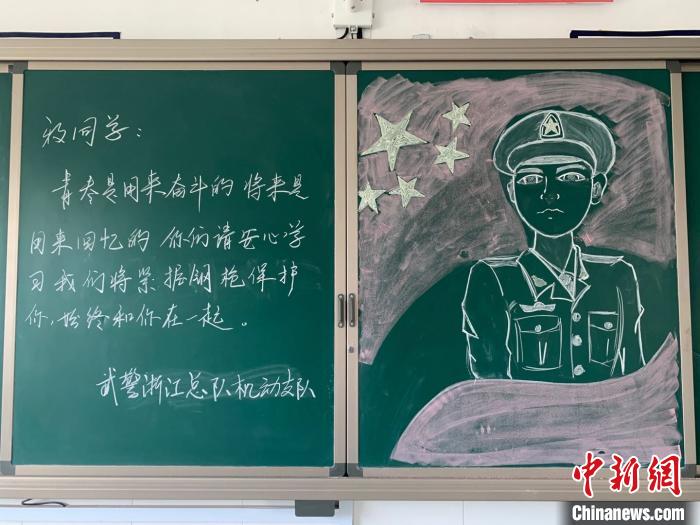 致同学：
青春是用来奋斗的 将来是
用来回忆的 你们请安心学
习我们将紧握钢枪保护
你，始终和你在一起。
武警浙江总队机动支队
中新網
Chinanews.com